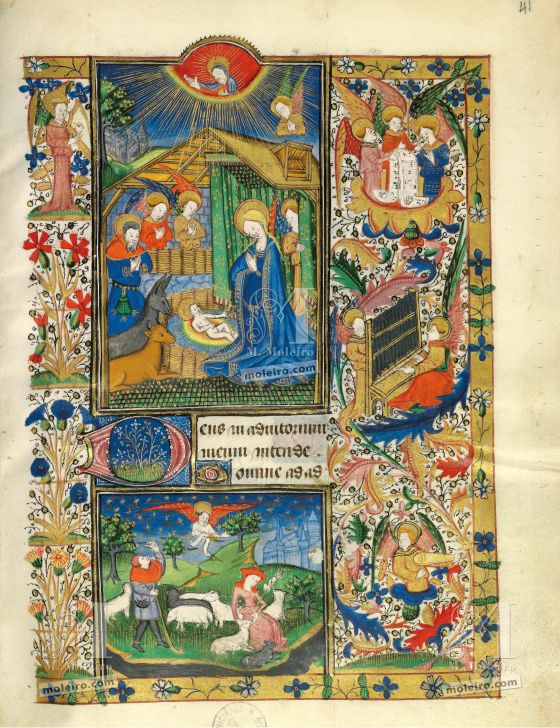 41
M. Moleiro
moleiro.com
eus in adiutorium
meum intende.
omine ad ad
moleiro.com
moleiro.com